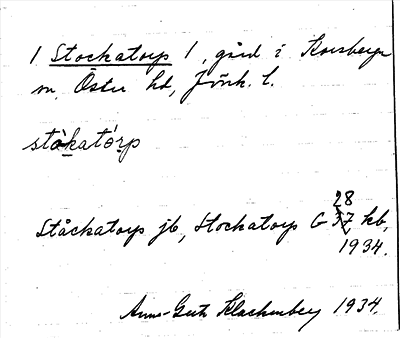 1 Stockatorp 1, gård i Korsberga
sn, Östra hd, Jönk. l.
stòkatórp
28
Ståckatorp jb, Stockatorp G 37 kb,
1934.
Anna-Greta Klackenberg 1934.